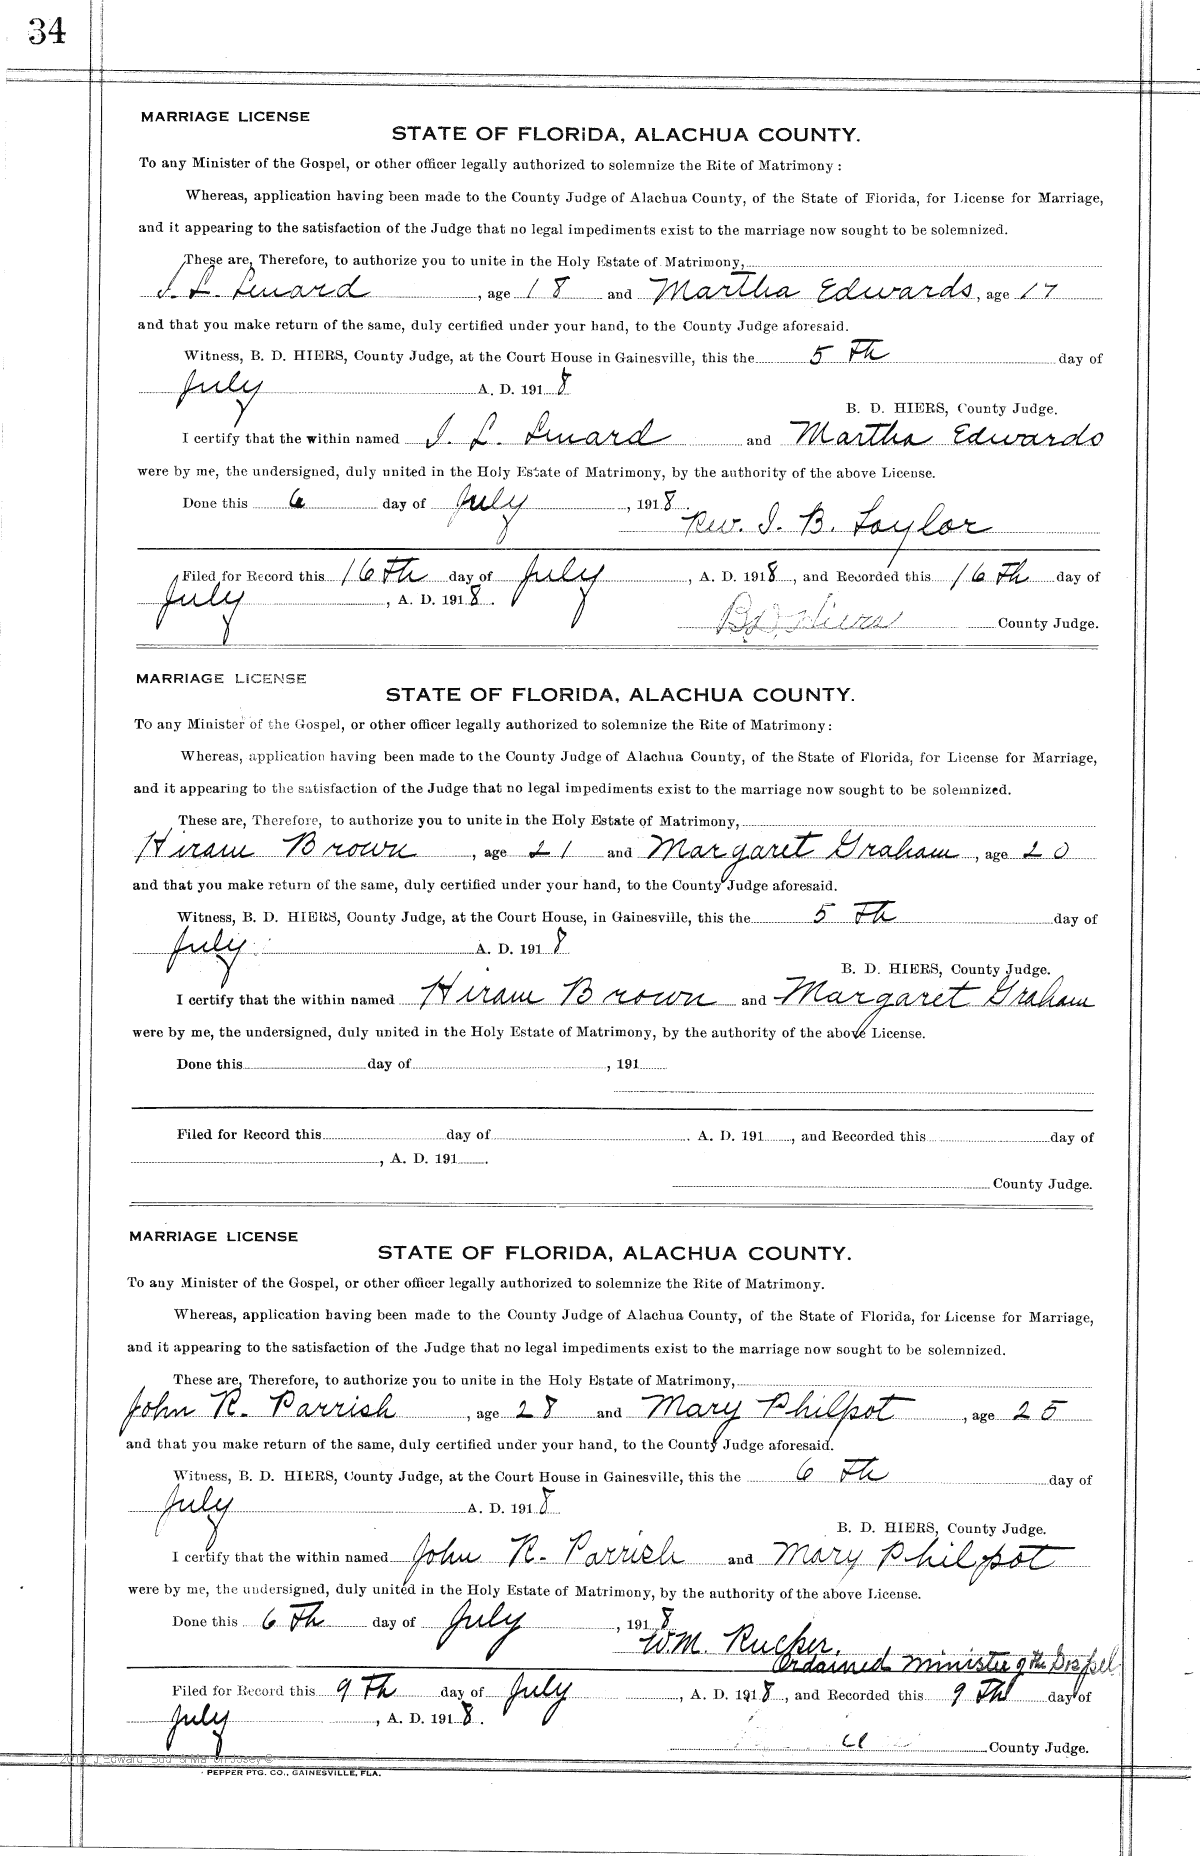 34
MARRIAGE LICENSE
STATE OF FLORIDA, ALACHUA COUNTY.
To any Minister of the Gospel, or other officer legally authorized to solemnize the Rite of Matrimony :
Whereas, application having been made to the County Judge of Alachua County, of the State of Florida, for License for Marriage,
and it appearing to the satisfaction of the Judge that no legal impediments exist to the marriage now sought to be solemnized.
These are, Therefore, to authorize you to unite in the Holy Estate of Matrimony,
L. , age 18 and Martha Edwards, age 17
and that you make return of the same, duly certified under your hand, to the County Judge aforesaid.
Witness, B. D. HIERS, County Judge, at the Court House in Gainesville, this the 5 Th day of
July A. D. 1918
B. D. HIERS, County Judge.
I certify that the within named L. and Martha Edwards
were by me, the undersigned, duly united in the Holy Estate of Matrimony, by the authority of the above License.
Done this 6 day of July , 1918.
Rev. B. Taylor
Filed for Record this 16Th day of July , A. D. 1918 , and Recorded this 16 Th day of
July , A. D. 1918.
B D Hiers County Judge.
MARRIAGE LICENSE
STATE OF FLORIDA, ALACHUA COUNTY.
To any Minister of the Gospel, or other officer legally authorized to solemnize the Rite of Matrimony:
Whereas, application having been made to the County Judge of Alachua County, of the State of Florida, for License for Marriage,
and it appearing to the satisfaction of the Judge that no legal impediments exist to the marriage now sought to be solemnized.
These are, Therefore, to authorize you to unite in the Holy Estate of Matrimony,
Hiram Brown , age 21 and Margaret Graham , age 20
and that you make return of the same, duly certified under your hand, to the County Judge aforesaid.
Witness, B. D. HIERS, County Judge, at the Court House, in Gainesville, this the 5 Th day of
July A. D. 1918
B. D. HIERS, County Judge.
I certify that the within named Hiram Brown and Margaret Graham
were by me, the undersigned, duly united in the Holy Estate of Matrimony, by the authority of the above License.
Done this day of , 191
Filed for Record this day of . A. D. 191 , and Recorded this day of
, A. D. 191 .
County Judge.
MARRIAGE LICENSE
STATE OF FLORIDA, ALACHUA COUNTY.
To any Minister of the Gospel, or other officer legally authorized to solemnize the Rite of Matrimony.
Whereas, application having been made to the County Judge of Alachua County, of the State of Florida, for License for Marriage,
and it appearing to the satisfaction of the Judge that no legal impediments exist to the marriage now sought to be solemnized.
These are, Therefore, to authorize you to unite in the Holy Estate of Matrimony,
John R. Parrish , age 28 and Mary Philpot , age 25
and that you make return of the same, duly certified under your hand, to the County Judge aforesaid.
Witness, B. D. HIERS, County Judge, at the Court House in Gainesville, this the 6 Th day of
July A. D. 1918
B. D. HIERS, County Judge.
I certify that the within named John R. Parrish and Mary Philpot
were by me, the undersigned, duly united in the Holy Estate of Matrimony, by the authority of the above License.
Done this 6 Th day of July , 1918
W.M. Rucker.
Ordained Minister of the Gospel
Filed for Record this 9 Th day of July , A. D. 1918 , and Recorded this 9 Th day of
July , A. D. 1918.
County Judge.
PEPPER PTG. CO., GAINESVILLE, FLA.